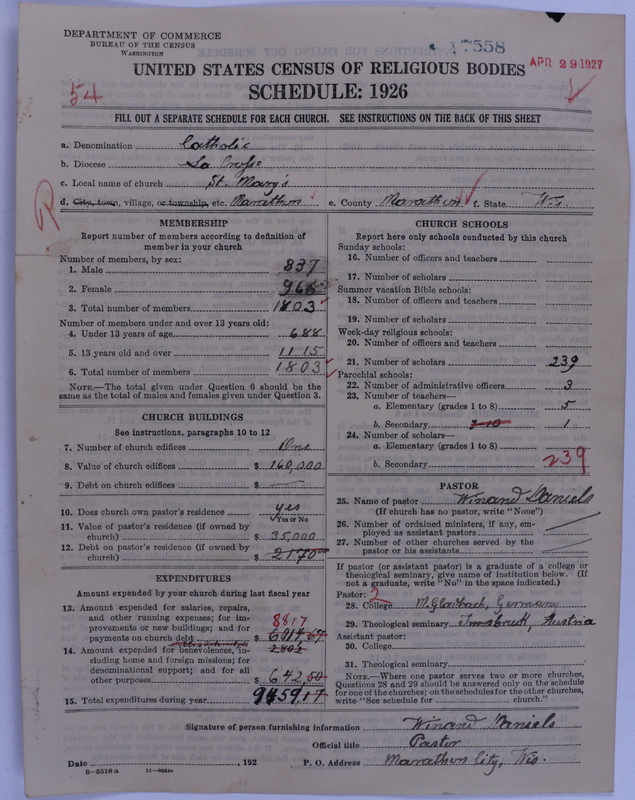 DEPARTMENT OF COMMERCE
BUREAU OF THE CENSUS
WASHINGTON
17558
APR 29 1927
UNITED STATES CENSUS OF RELIGIOUS BODIES
SCHEDULE: 1926
54
FILL OUT A SEPARATE SCHEDULE FOR EACH CHURCH. SEE INSTRUCTIONS ON THE BACK OF THIS SHEET
a. Denomination Catholic
b. Diocese La Crosse
c. Local name of church St. Mary's
d. City, town, village, or township, etc. Marathon e. County Marathon f. State Wis.
MEMBERSHIP
Report number of members according to definition of
member in your church
Number of members, by sex:
1. Male 837
2. Female 966
3. Total number of members 1803
Number of members under and over 13 years old:
4. Under 13 years of age 688
5. 13 years old and over 1115
6. Total number of members 1803
NOTE.—The total given under Question 6 should be
same as the total of males and females given under Question 3.
CHURCH BUILDINGS
See instructions, paragraphs 10 to 12
7. Number of church edifices One
8. Value of church edifices $ 160,000
9. Debt on church edifices $ —
10. Does church own pastor's residence yes
Yes or No
11. Value of pastor's residence (if owned by
church) $ 35,000
12. Debt on pastor's residence (if owned by
church) $ 2170 00
EXPENDITURES
Amount expended by your church during last fiscal year
13. Amount expended for salaries, repairs,
and other running expenses; for im-
provements or new buildings; and for
payments on church debt 8817
$ 6014,67
14. Amount expended for benevolences, in- 2802
cluding home and foreign missions; for
denominational support; and for all
other purposes $ 642,50
15. Total expenditures during year 945917
CHURCH SCHOOLS
Report here only schools conducted by this church
Sunday schools:
16. Number of officers and teachers
17. Number of scholars
Summer vacation Bible schools:
18. Number of officers and teachers
19. Number of scholars
Week-day religious schools:
20. Number of officers and teachers
21. Number of scholars 239
Parochial schools:
22. Number of administrative officers 3
23. Number of teachers—
a. Elementary (grades 1 to 8) 5
b. Secondary 9-10 1
24. Number of scholars—
a. Elementary (grades 1 to 8)
b. Secondary 239
PASTOR
25. Name of pastor Winand Daniels
(If church has no pastor, write "None")
26. Number of ordained ministers, if any, em-
ployed as assistant pastors
27. Number of other churches served by the
pastor or his assistants
If pastor (or assistant pastor) is a graduate of a college or
theological seminary, give name of institution below. (If
not a graduate, write "No" in the space indicated.)
Pastor: 2
28. College M. Gladbach, Germany
29. Theological seminary Innsbruck, Austria
Assistant pastor:
30. College
31. Theological seminary
NOTE.—Where one pastor serves two or more churches,
Questions 28 and 29 should be answered only on the schedule
for one of the churches; on the schedules for the other churches,
write "See schedule for church."
Signature of person furnishing information Winand Daniels
Official title Pastor
Date , 192 P. O. Address Marathon City, Wis.